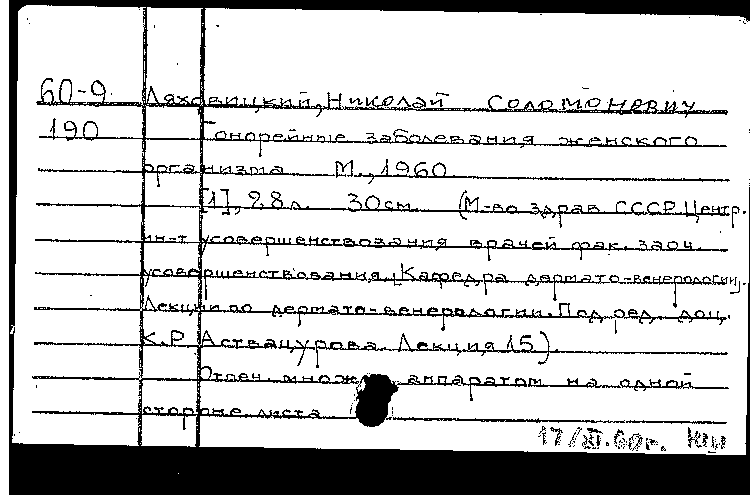 60-9 Ляховицкий, Николай Соломонович
190 Гонорейные заболевания женского
организма М., 1960.
[1], 28 л. 30 см. (М-во здрав. СССР. Центр.
ин-т усовершенствования врачей фак. заоч.
усовершенствования. Кафедра дермато-венерологии.
Лекции по дермато-венерологии. Под ред. доц.
К.Р. Аствацурова. Лекция 15)
Отпеч. множ. аппаратом на одной
стороне листа
17/XI.60г.